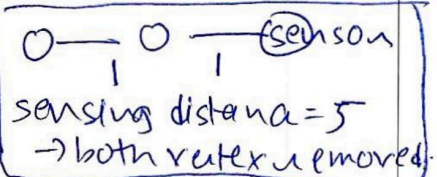 senson
1 1
sensing distana=5
→both vertex removed.